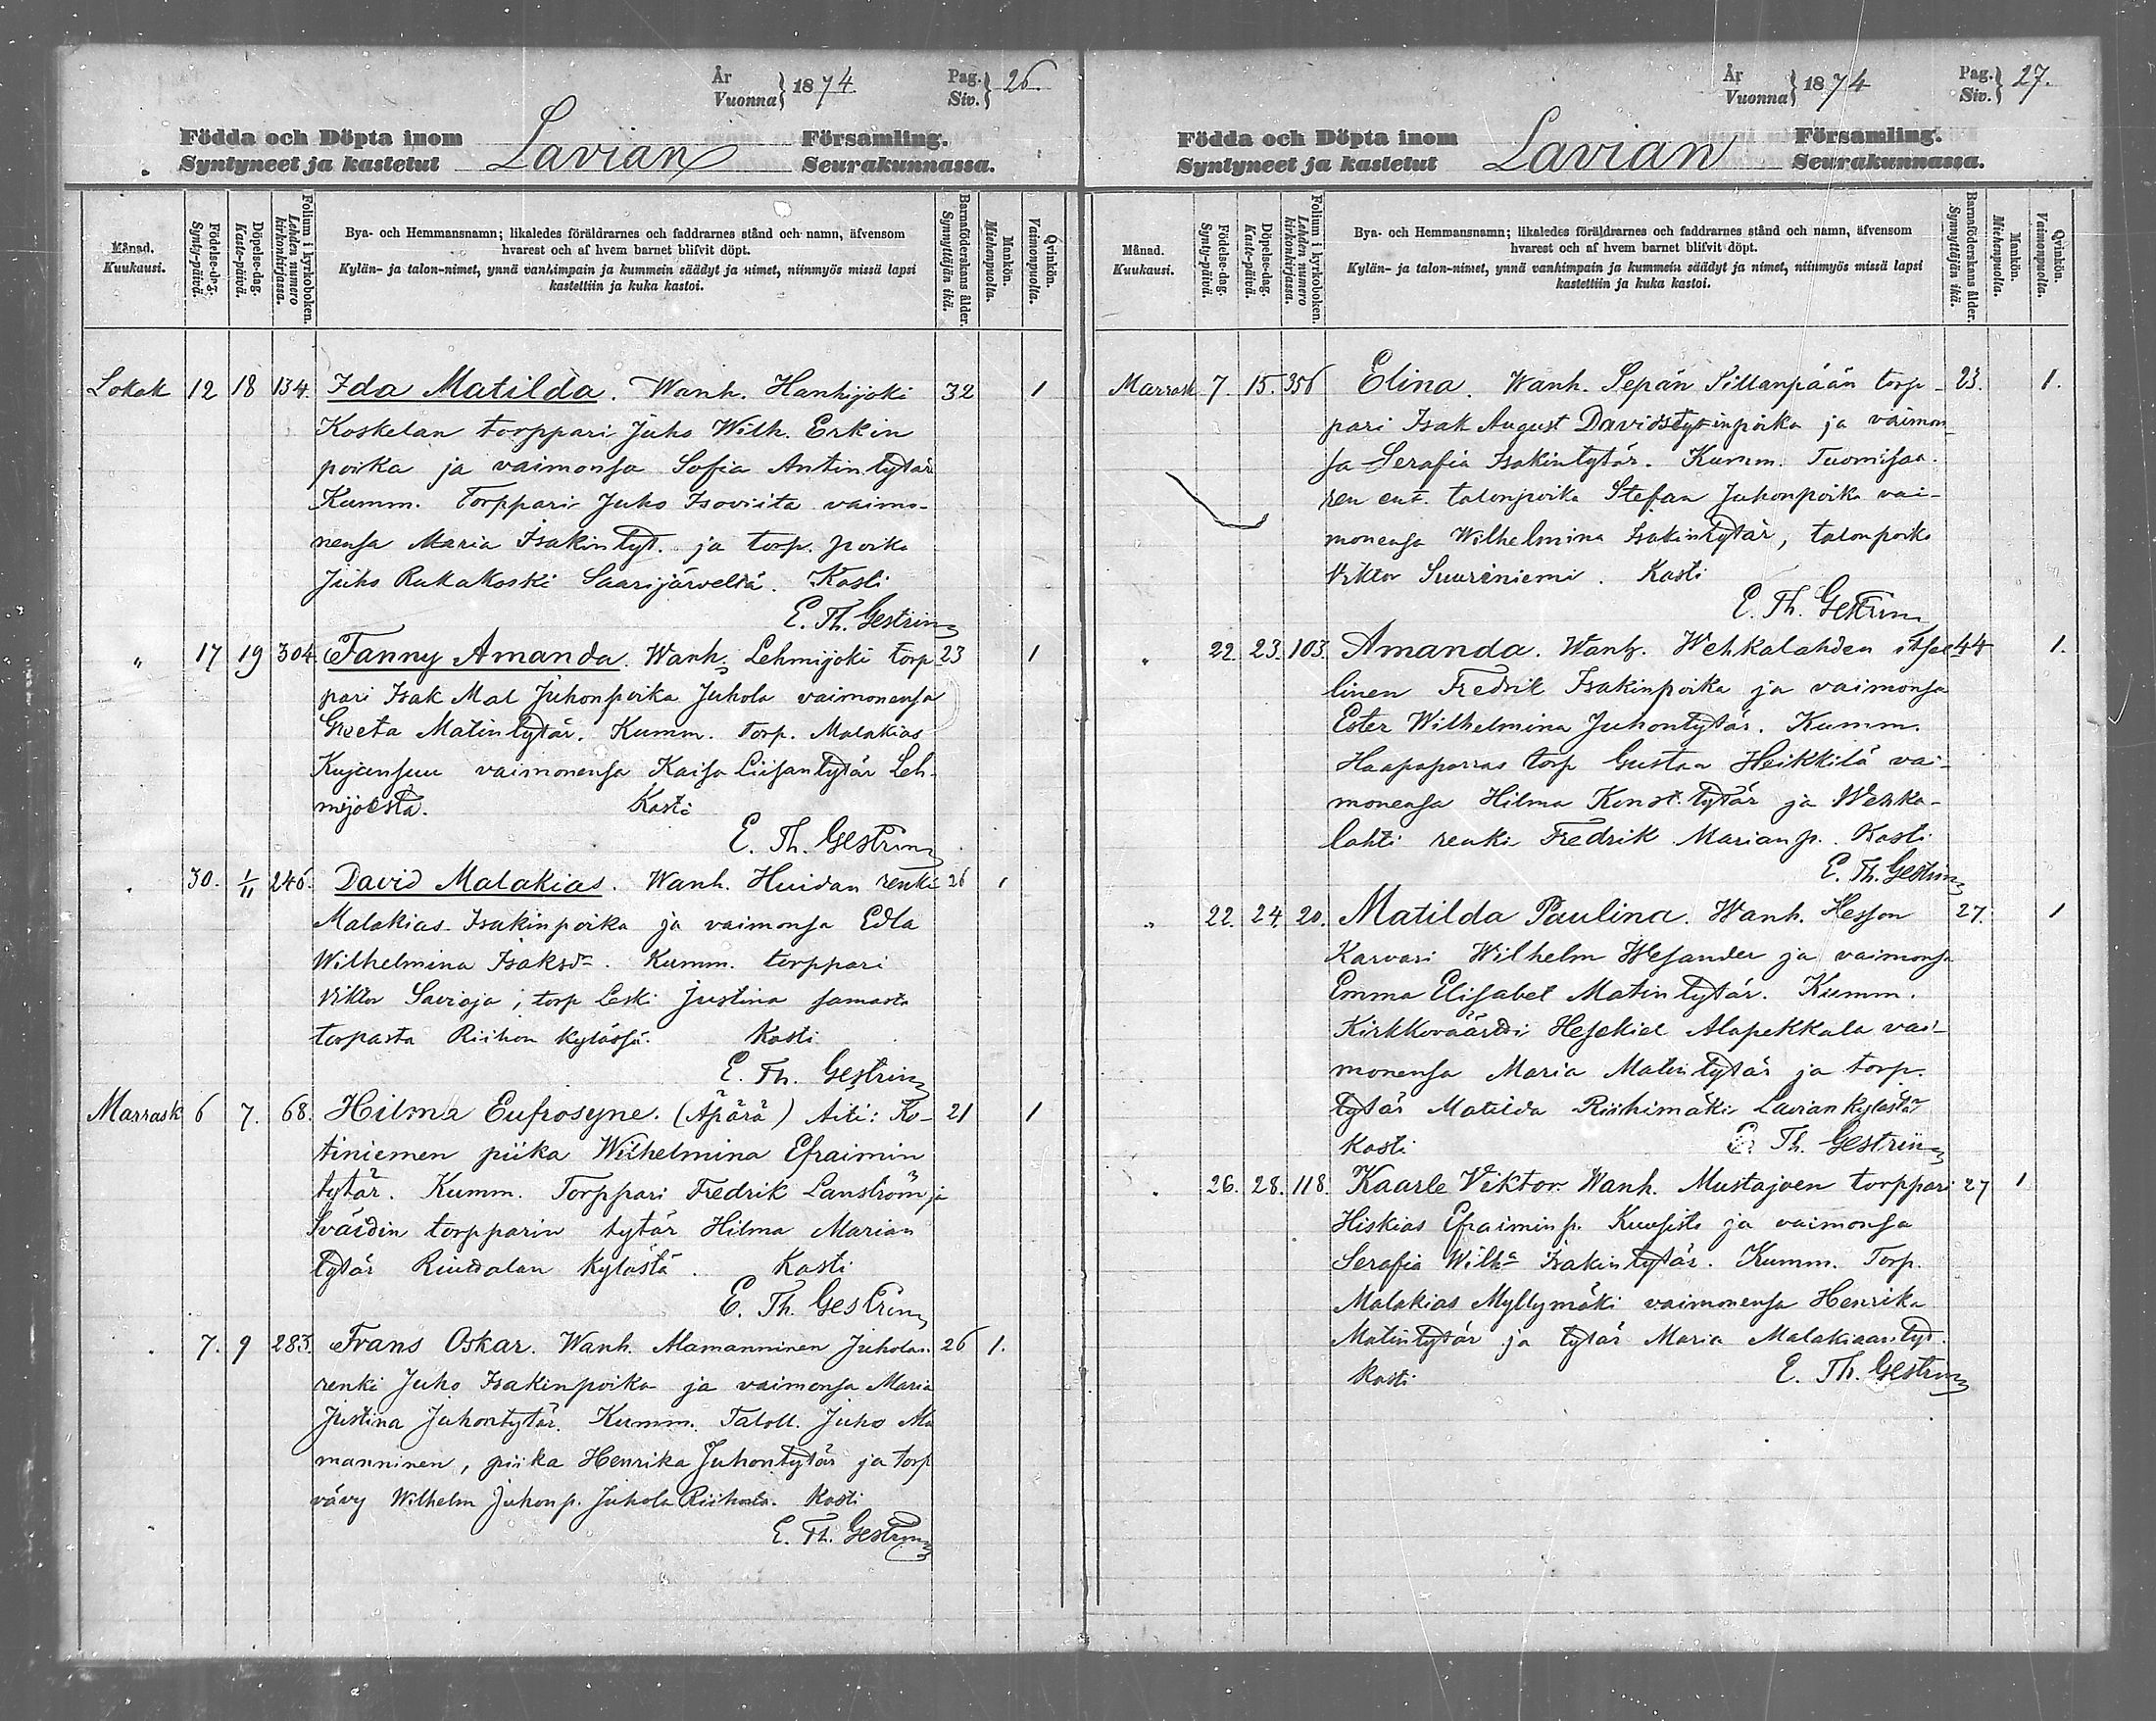 År
Vuonna } 1874
Pag.
Siv. } 26
Födda och Döpta inom
Syntyneet ja kastetut
Lavian
Församling.
Seurakunnassa.
Månad.
Kuukausi.
Födelse-dag.
Synty-päivä.
Döpelse-dag.
Kaste-päivä.
Folium i kyrkoboken.
Lehden numero kirkonkirjassa.
Bya- och Hemmansnamn; likaledes föräldrarnes och faddrarnes stånd och namn, äfvensom
hvarest och af hvem barnet blifvit döpt.
Kylän- ja talon-nimet, ynnä vanhimpain ja kummein säädyt ja nimet, niinmyös missä lapsi
kastettiin ja kuka kastoi.
Barnaföderskans ålder.
Synnyttäjän ikä.
Mankön.
Miehenpuolla.
Qvinkön.
Vaimonpuolla.
Lokak 12 18 134. Ida Matilda. Wanh. Hanhijoki 32 1
Koskelan torppari Juho Wilh. Erkin
poika ja vaimonsa Sofia Antintytär
Kumm. Torppari Juho Isoviita vaimo-
nensa Maria Isakintyt. ja torp. poika
Juho Rukakoski Saarijärveltä. Kasti
E. Th. Gestrin
" 17 19 304. Fanny Amanda. Wanh. Lehmijoki torp 23 1
pari Isak Mal Juhonpoika Juhola vaimonensa
Greta Matintytär. Kumm. torp. Malakias
Kujansuu vaimonensa Kaisa Liisantytär Leh-
mijoesta. Kasti
E. Th. Gestrin
. 30. 1/11 246. David Malakias. Wanh. Huidan renki 26 1
Malakias Isakinpoika ja vaimonsa Edla
Wilhelmina Isaksdr. Kumm. torppari
Viktor Savioja, torp Leski Justina samasta
torpasta Riihon kylässä. Kasti
E. Th. Gestrin
Marrask 6 7. 68. Hilma Eufrosyne. (Äpärä) Äiti: Ko- 21 1
tiniemen piika Wilhelmina Efraimin
tytär. Kumm. Torppari Fredrik Lanström ja
Svärdin torpparin tytär Hilma Marian
tytär Riudalan kylästä. Kasti
E. Th. Gestrin
. 7. 9 283. Frans Oskar. Wanh. Mamanninen Juholan 26 1.
renki Juho Isakinpoika ja vaimonsa Maria
Justina Juhontytär. Kumm. Taloll. Juho Ma
manninen, piika Henrika Juhontytär ja torp
vävy Wilhelm Juhonp. Juhola Riihosta. Kasti
E. Th. Gestrin
År
Vuonna } 1874
Pag.
Siv. } 27.
Födda och Döpta inom
Syntyneet ja kastetut
Lavian
Församling.
Seurakunnassa.
Månad.
Kuukausi.
Födelse-dag.
Synty-päivä.
Döpelse-dag.
Kaste-päivä.
Folium i kyrkoboken.
Lehden numero kirkonkirjassa.
Bya- och Hemmansnamn; likaledes föräldrarnes och faddrarnes stånd och namn, äfvensom
hvarest och af hvem barnet blifvit döpt.
Kylän- ja talon-nimet, ynnä vanhimpain ja kummein säädyt ja nimet, niinmyös missä lapsi
kastettiin ja kuka kastoi.
Barnaföderskans ålder.
Synnyttäjän ikä.
Mankön.
Miehenpuolla.
Qvinkön.
Vaimonpuolla.
Marrask 7. 15. 356 Elina. Wanh. Sepän Sillanpään torp- 23. 1.
pari Isak August ja vaimon-
sa Serafia Isakintytär. Kumm. Tuomisaa-
ren ent. talonpoika Stefan Juhonpoika vai-
monensa Wilhelmina Isakintytär, talonpoika
Viktor Suuriniemi. Kasti
E. Th. Gestrin
" 22. 23. 103. Amanda. Wanh. Wehkalahden itsel 44 1.
linen Fredrik Isakinpoika ja vaimonsa
Ester Wilhelmina Juhontytär. Kumm.
Haapaparras torp Gustaa Heikkilä vai-
monensa Hilma Konst.tytär ja Wehka-
lahti renki Fredrik Marianp. Kasti
E. Th. Gestrin
" 22. 24. 20. Matilda Paulina. Wanh. Hesson 27. 1
Karvari Wilhelm Wesander ja vaimonsa
Emma Elisabet Matintytär. Kumm.
Kirkkovääräti Hesekiel Alapekkala vai-
monensa Maria Matintytär ja torp.
tytär Matilda Riihimäki Lavian kylästä
Kasti E. Th. Gestrin
. 26. 28. 118. Kaarle Viktor. Wanh. Mustajoen torppari 27 1
Hiskias Efraiminp. Kuusisto ja vaimonsa
Serafia Wilh:a Isakintytär. Kumm. Torp.
Malakias Myllymäki vaimonensa Henrika
Matintytär ja tytär Maria Malakiaantyt.
Kasti E. Th. Gestrin